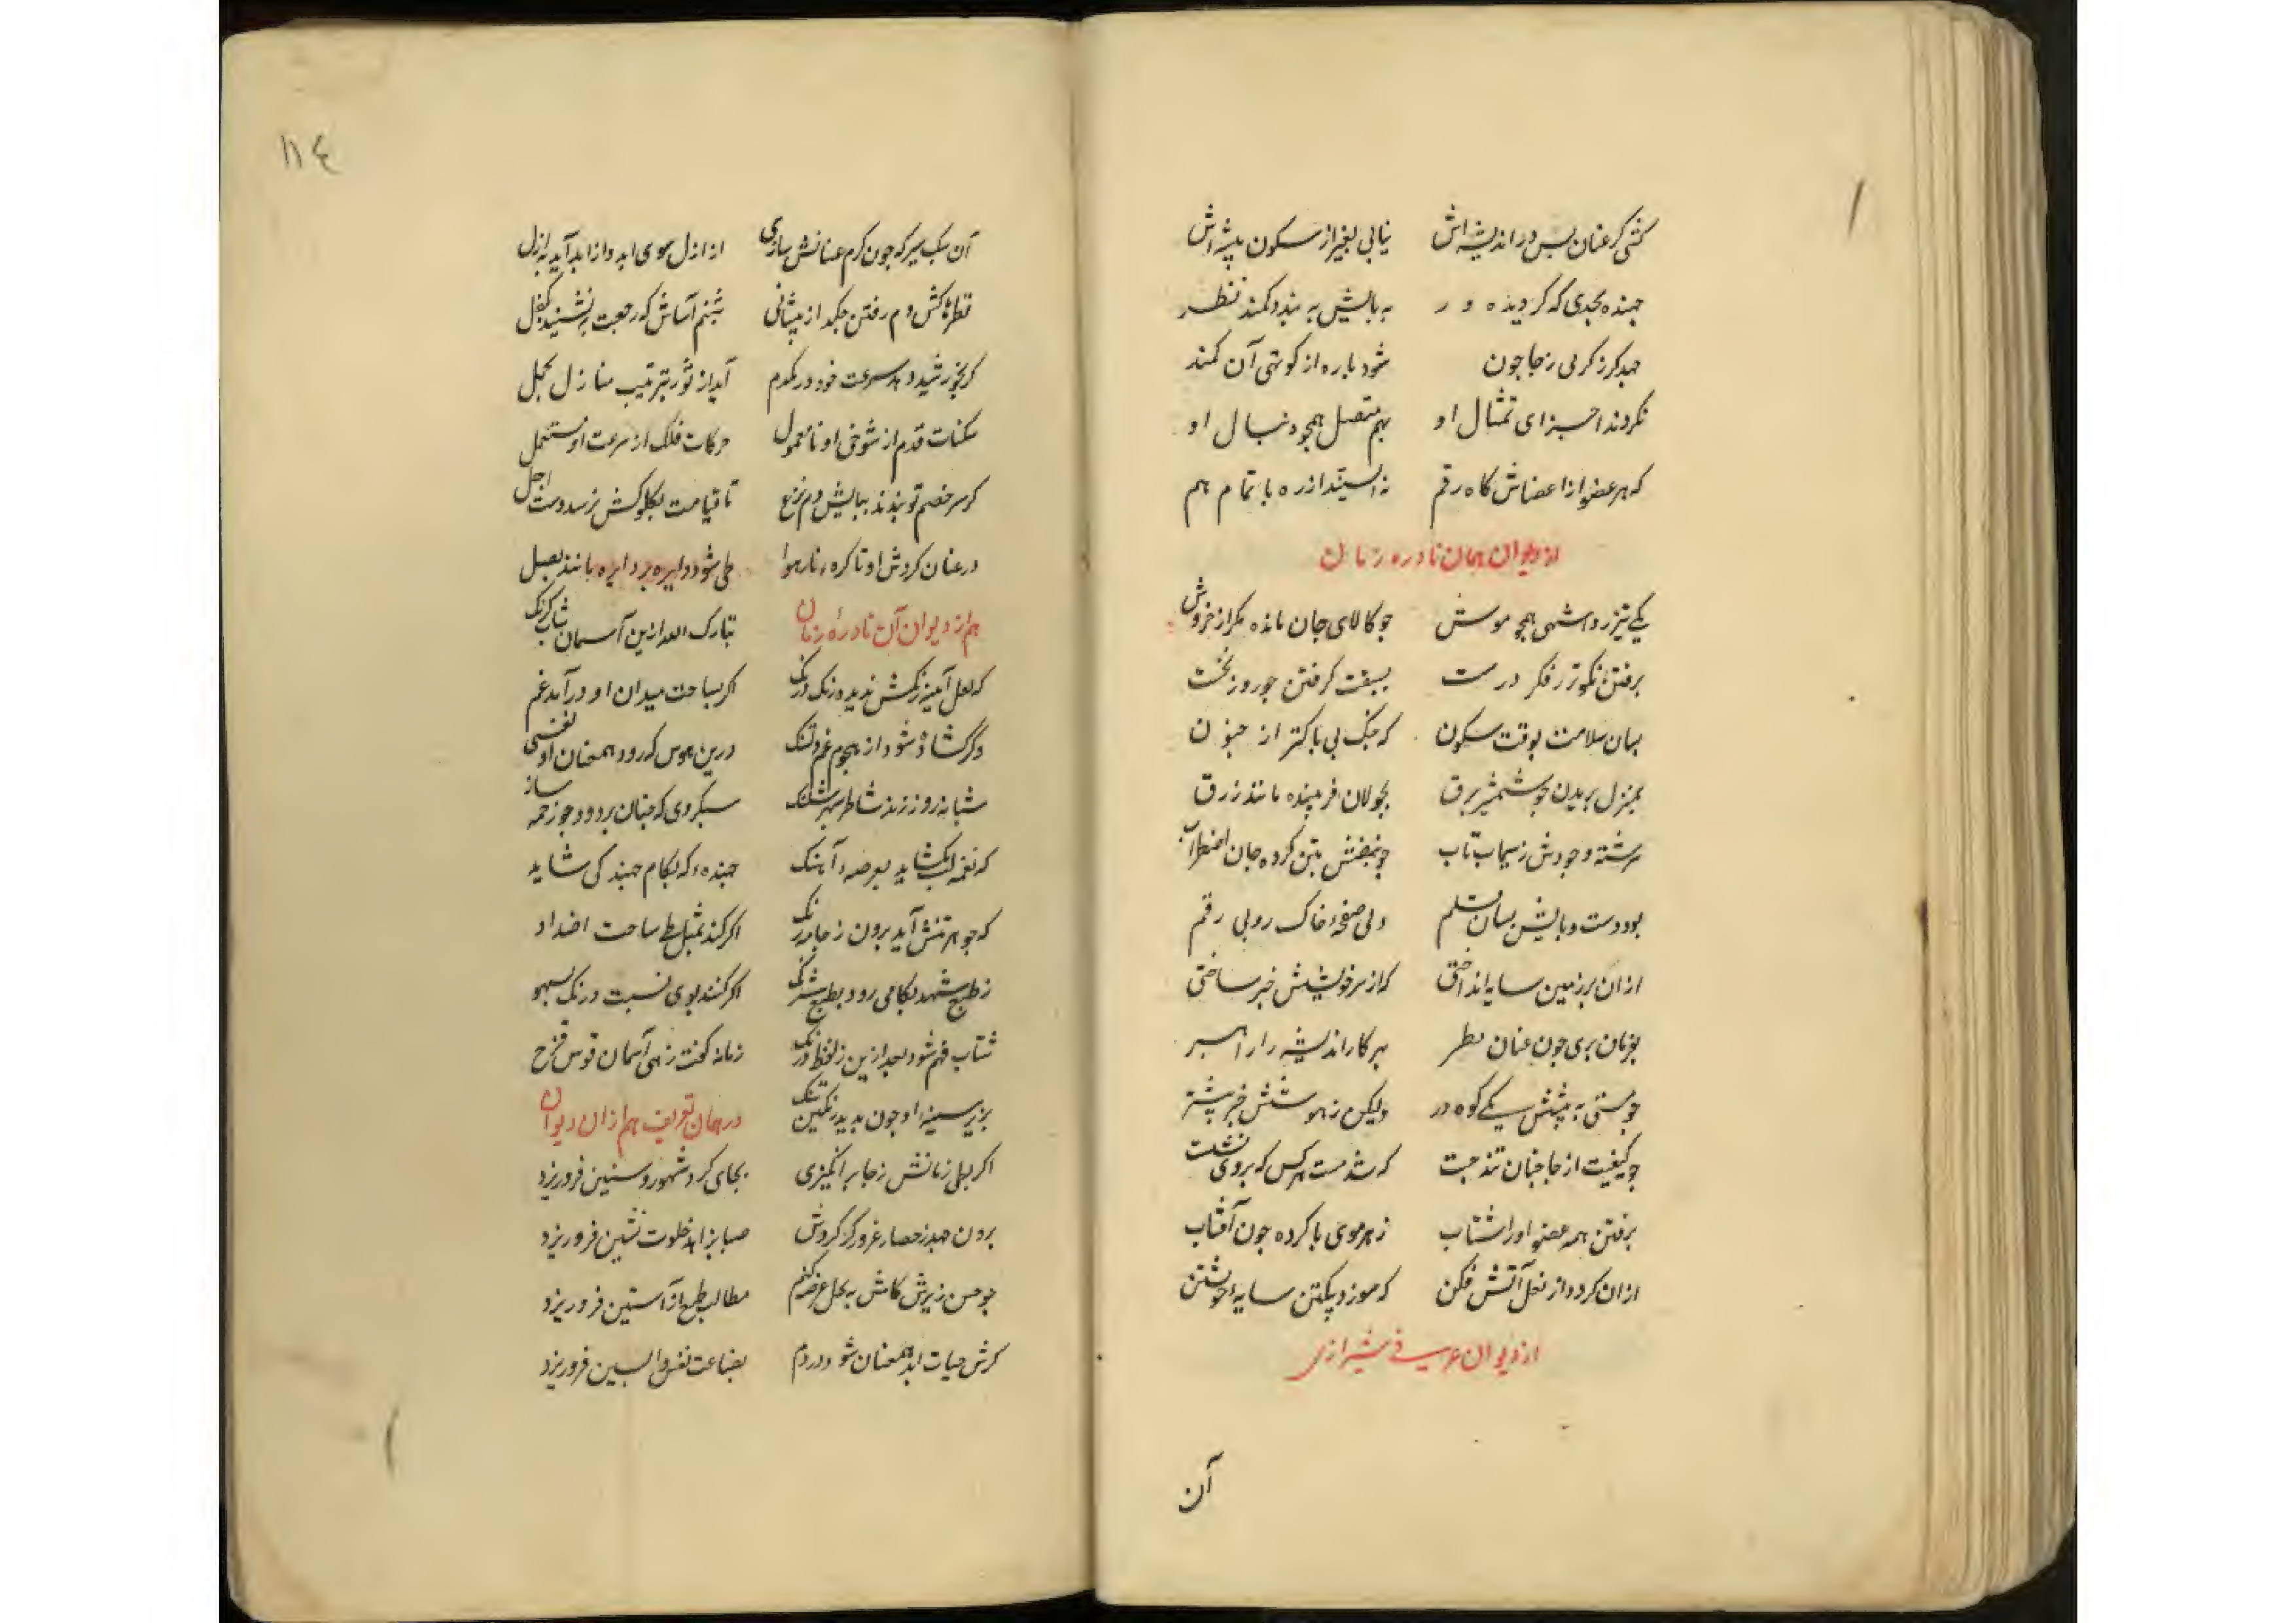 کشی گر عنان پس در اندیشه‌اش نیابی بغیر از سکون پیشه‌اش
جهنده بجدی که گر دیده ور به پایش به بندد کمند نظر
جهد گر ز گرمی ز جا چون شود پاره از کوتهی آن کمند
نکردند اجزای تمثال او بهم متصل همچو دنبال او
که هر عضو از اعضاش گاه رقم نه ایستند از ره با تمام هم
از دیوان همان نادره زمان
یکی تیزرو اشهبی همچو موش چو کالای جان مانده مکر از خروش
برفتن نکوتر ز فکر درست بسبقت گرفتن چو روز نخست
بسان سلامت بوقت سکون که جنگ بی باکتر از جنون
بمنزل بریدن چو شمشیر برق بجولان فریبنده مانند زرق
سرشته وجودش ز سیماب ناب چو نبضش بتن کرده جان اضطراب
بود دست و پایش بسان قلم ولی صفحهٔ خاک روبی رقم
از ان بر زمین سایه انداختی که از سرخویشش خبر ساختی
بفرمان بری چون عنان نظر بهر کار اندیشه را راهبر
چو هستی به پیشش یکی کوه در ولیکن ز هوشش خبر پیشتر
چو کیفیت از جا چنان تند جست که شد مست هر کس که بر وی نشست
برفتن همه عضو او را شتاب ز هر موی پا کرده چون آفتاب
از ان کردد از نعل آتش فکن که سوزد بیکتن سایه خویشتن
از دیوان عرفی شیرازی
آن
۱۱٤
آن سبک سیر که چون گرم عنانش سازی از ازل سوی ابد وز ابد آید به ازل
قطره کش دم رفتن چکد از پیشانی شبنم آساش که رجعت بنشیند بکفل
گر بخورشید دهد سرعت خود در یکدم آید از ثور بترتیب منازل بحمل
سکنات قدم از شوخی او نامعمول حرکات فلک از سرعت او مستعمل
گر سر خصم تو بندند بپایش دم نزع تا قیامت بگلوکش نرسد دست اجل
در عنان گردش او تا کره نار هوا طی شود دایره بر دایره مانند بصل
هم از دیوان آن نادرهٔ زمان تبارک الله ازین آسمان شتاب کرنک
که لعل آینه رنکش ندیده رنک درنک اگر بساحت میدان او درآمد غم
دگر گشاده شود از هجوم غم دلتنک درین هوس که رود همعنان او نفسی
شبانه روز زند شاطر سپهر شلنک سبکروی که چنان بر دود چو زخمه ساز
که نغمه لب نگشاید بعرصه آهنک جهنده که بگام جهند کی شاید
که جوهر تنش آید برون ز جامه رنک اگر کند بمثل طی ساحت اضداد
ز طبع شهد بکامی رود بطبع شرنک اگر کنند بوی نسبت درنک بسهو
شتاب فهم شود بعد ازین ز لفظ درنک زمانه گفت زهی آسمان قوس قزح
بزیر سینه او چون بدید رنکین تنک در همان تعریف هم از ان دیوان
اگر بطی زمانش ز جا برانگیزی بجای گرد شهور و سنین فرو ریزد
برون جهد ز حصار غرور گر گردش صبا بزاهد خلوت نشین فرو ریزد
چو حسن ریزش گامش به بخل عرضه کنم مطالب طمع از آستین فرو ریزد
گرش حیات ابد همعنان شود در دم بضاعت نفس واپسین فرو ریزد